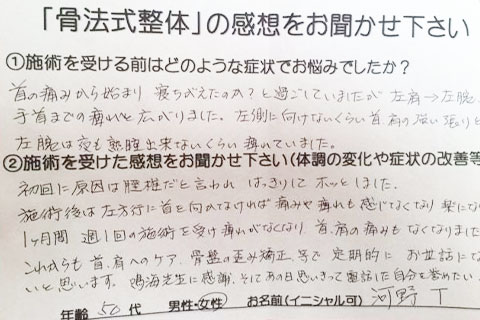 「骨法式整体」の感想をお聞かせ下さい
①施術を受ける前はどのような症状でお悩みでしたか?
首の痛みから始まり 寝ちがえたのか?と過ごしていましたが 左肩→左腕、
手首までの痺れと広がりました。左側に向けないくらい首、肩の強い張りと
左腕は夜も熟睡出来ないくらい痺れていました。
②施術を受けた感想をお聞かせ下さい(体調の変化や症状の改善等
初回に原因は脛椎だと言われ はっきりして ホッとしました。
施術後は左方行に首を向かなければ痛みや痺れも感じなくなり 楽にな
1ヶ月間 週1回の施術を受け痺れがなくなり 首、肩の痛みもなくなりました
これからも首、肩へのケア、骨盤の歪み矯正等で 定期的に お世話にな
いと思います。鳴海先生に感謝、そしてあの日思いきって電話した自分を誉めたい
年齢 50代 男性・女性 お名前(イニシャル可) 河野 T